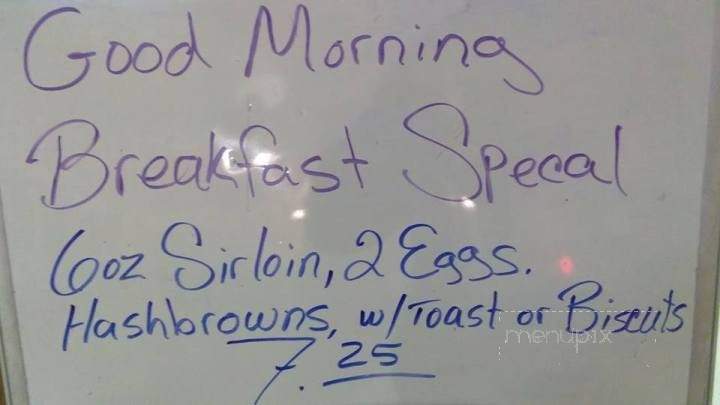 Good Morning
Breakfast Specal
6oz Sirloin, 2 Eggs.
Hashbrowns, w/Toast or Biscuts
menupix
7.25